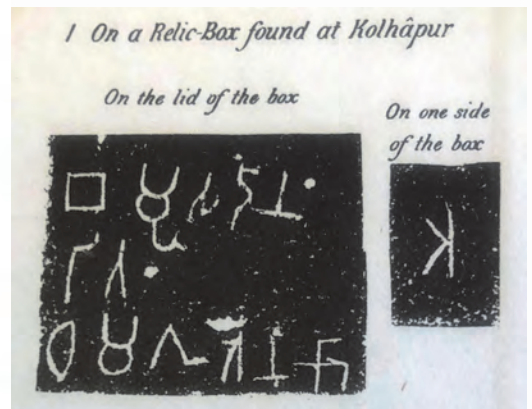 1 On a Relic-Box found at Kolhâpur
On the lid of the box
On one side
of the box
𑀩𑀫𑁆𑀳𑀲 𑀤𑀸𑀦𑀁
𑀭𑀺𑀢𑀁
𑀥𑀫𑀕𑀼𑀢𑁂𑀦 𑀓𑀸